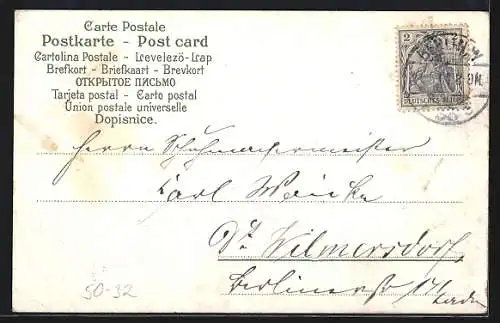 Carte Postale
Postkarte - Post card
Cartolina Postale - Łrevelező-Łrap
Brefkort - Briefkaart - Brevkort
ОТКРЫТОЕ ПИСЬМО
Tarjeta postal - Carto postal
Union postale universelle
Dopisnice.
2 2
BERLIN
DEUTSCHES REICH
Herrn Schuhmachermeister
Karl
Dt. Wilmersdorf,
Berlinerstr 171
50-32